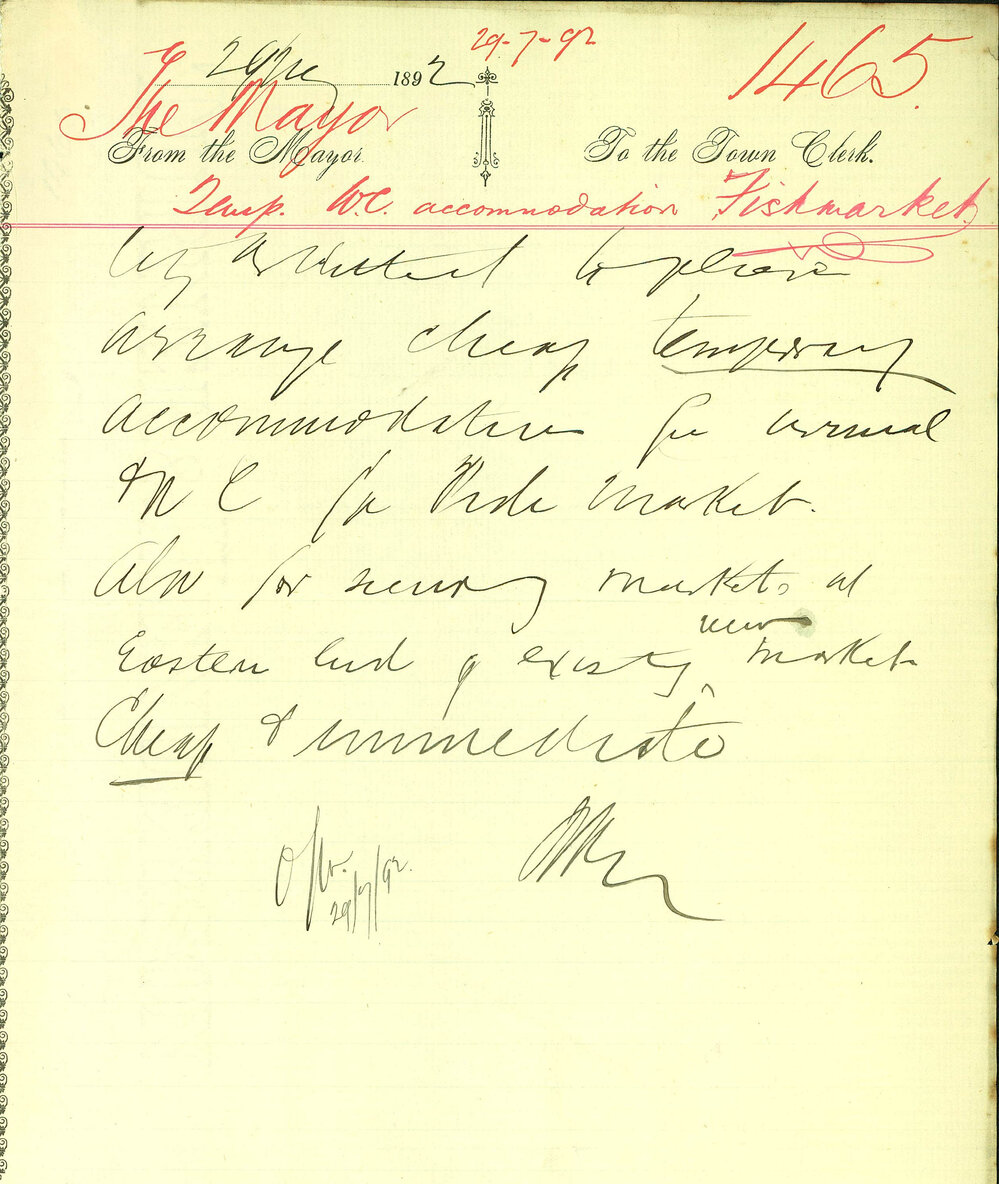 29-7-92
29 July 1892
1465.
The Mayor
From the Mayor. To the Town Clerk.
Temp. W.C. accommodation Fishmarket
City Architect to please
arrange cheap temporary
accommodation for urinal
& W C for Fish Market.
Also for markets at
Eastern end of existing new market
Cheap & immediate
29/7/92.